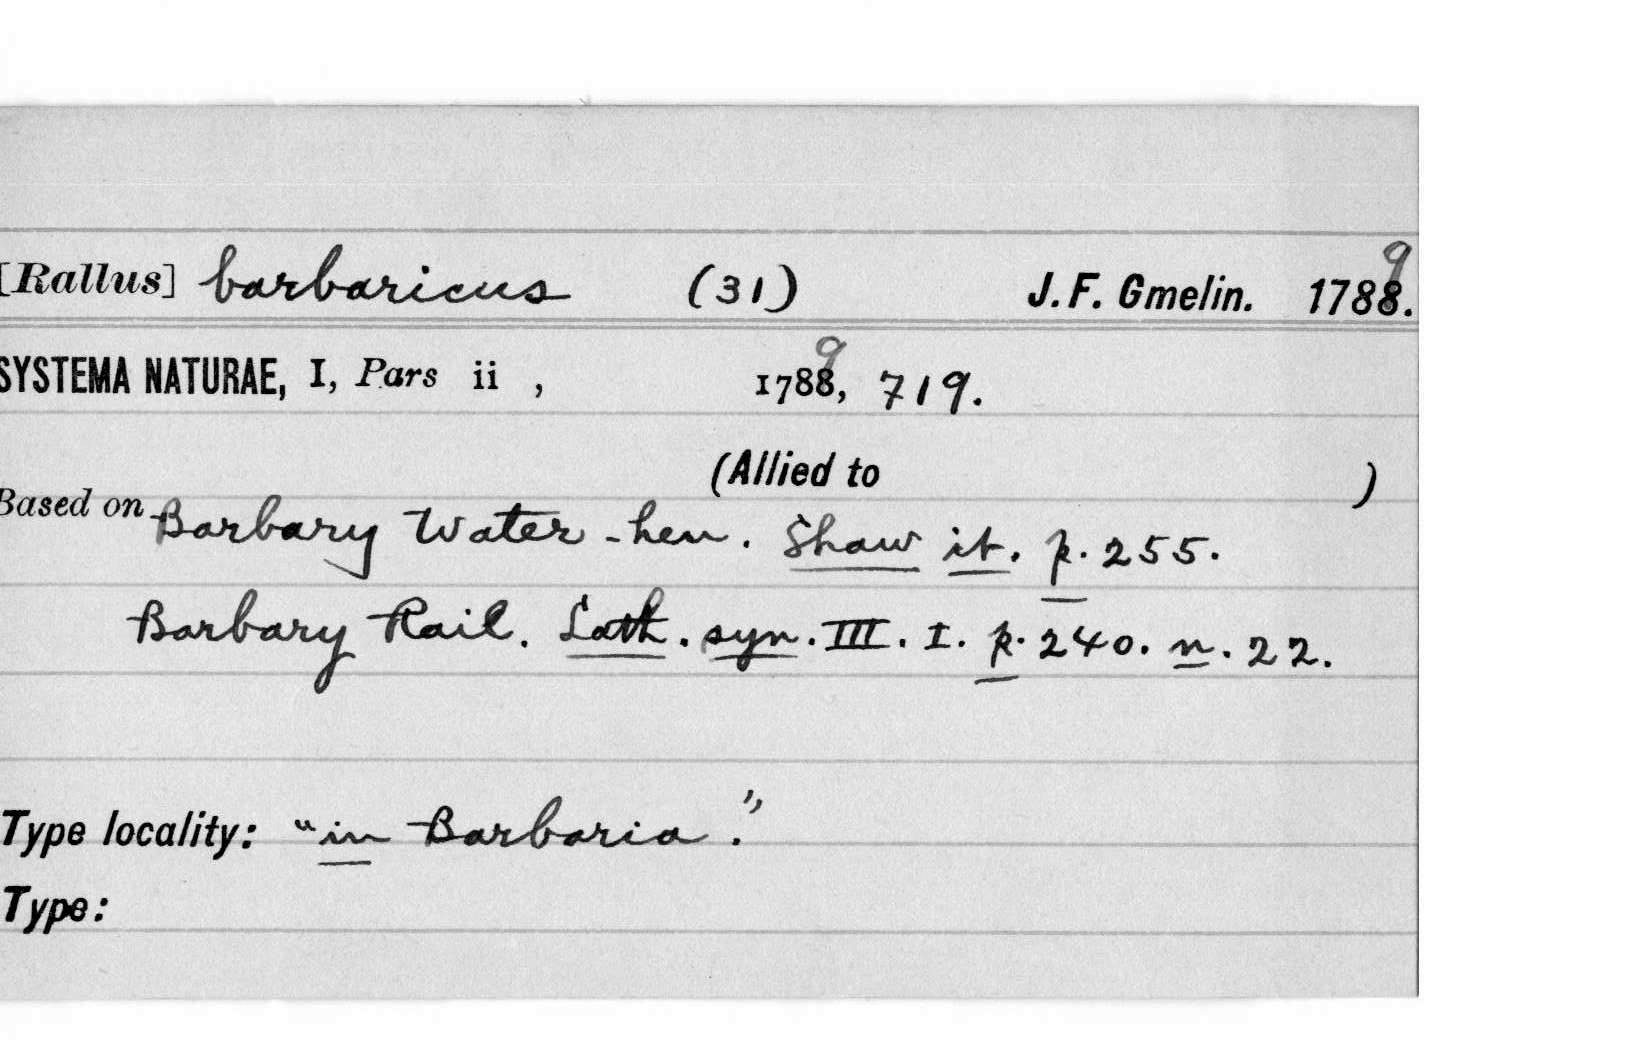 [Rallus] barbaricus (31) J. F. Gmelin. 1788.9
SYSTEMA NATURAE, I, Pars ii , 1788,9 719.
(Allied to )
Based on Barbary Water-hen. Shaw it. p. 255.
Barbary Rail. Lath. syn. III. I. p. 240. n. 22.
Type locality: "in Barbaria."
Type: